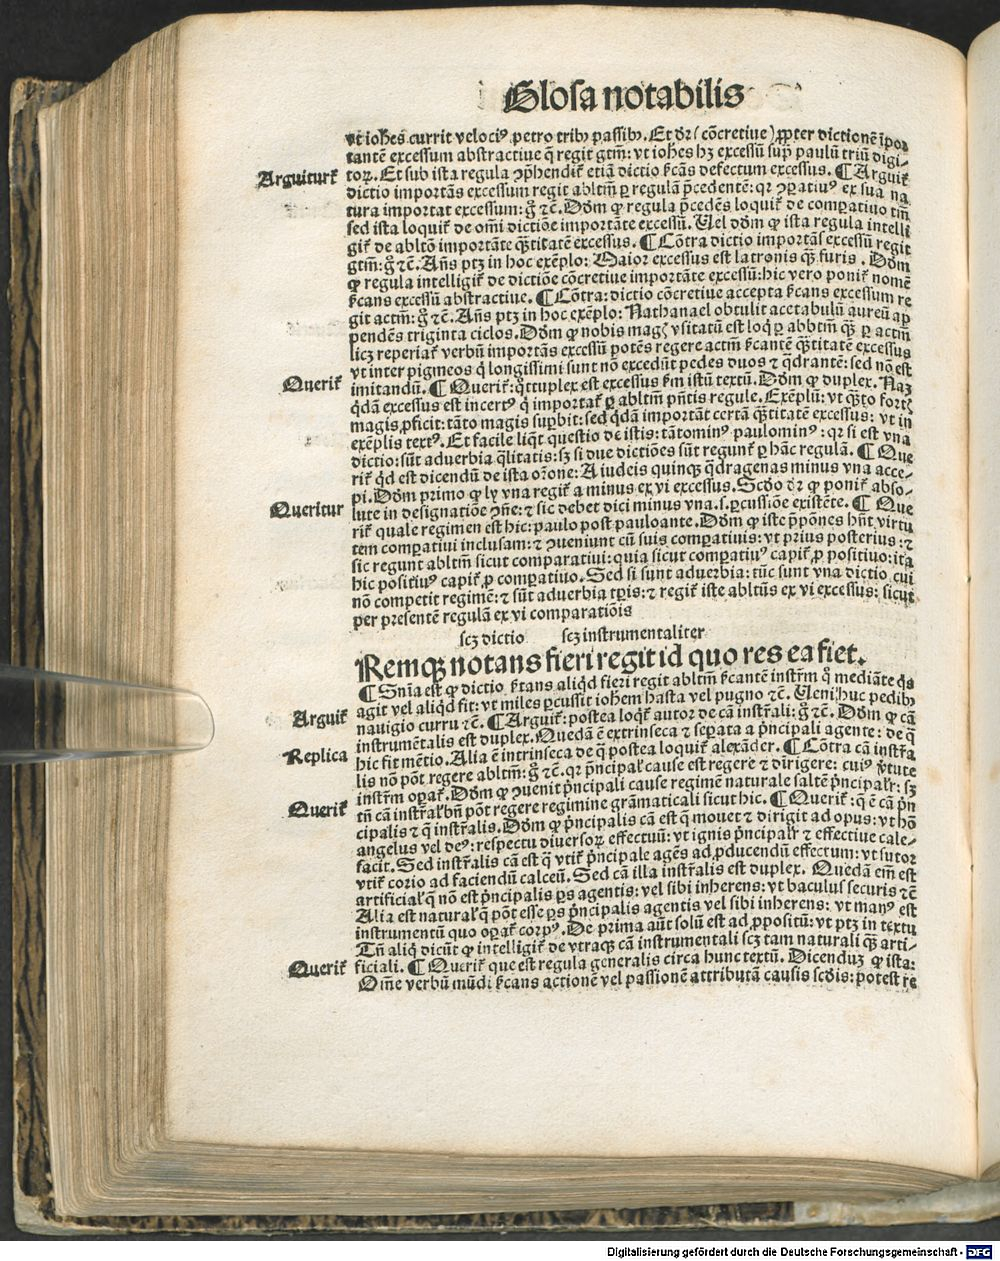 Glosa notabilis
vt iohēs currit velociꝰ petro tribꝰ passibꝰ. Et dr̄ (cōcretiue) ꝓpter dictionē īpor
tantē excessum abstractiue q̄ regit gtm̄: vt iohēs hꝫ excessū supra paulū triū digi-
Arguitur
toꝝ. Et sub ista regula ꝯp̄hendit̄ etiā dictio s̄cās defectum excessus. ¶ Arguit̄
dictio importās excessum regit abltm̄ ꝑ regulā p̄cedentē: qꝛ ꝯꝑatiuꝰ ex sua na
tura importat excessum: gͦ ⁊c̄. Dōm ꝙ regula p̄cedēs loquit̄ de comparatiuo tm̄
sed ista loquit̄ de om̄i dictiōe importāte excessū. Uel dōm ꝙ ista regula intelli
git̄ de abltō importāte q̄titatē excessus. ¶ Cōtra dictio importās excessū regit
gtm̄: gͦ ⁊c̄. Añs ptꝫ in hoc exēplo: Maior excessus est latronis q̄ꝫ furis. Dōm
ꝙ regula intelligit̄ de dictiōe cōcretiue importāte excessū: hic vero ponit̄ nomē
s̄cans excessū abstractiue. ¶ Cōtra: dictio cōcretiue accepta s̄cans excessum re
git actm̄: gͦ ⁊c̄. Añs ptꝫ in hoc exēplo: Nathanael obtulit acetabulū aureū ap
pendēs triginta ciclos. Dōm ꝙ nobis magꝭ vsitatū est loqͥ ꝑ abbtm̄ q̄ꝫ ꝑ actm̄
licꝫ reperiat̄ verbū importās excessū potēs regere actm̄ s̄cantē q̄titatē excessus
vt inter pigmeos qͥ longissimi sunt nō excedūt pedes duos ⁊ qͣdrantē: sed nō est
Querit̄
imitandū. ¶ Querit̄: qͦtuplex est excessus s̄m istū textū. Dōm ꝙ duplex. Naꝫ
qͥdā excessus est incertꝰ qͥ importat̄ ꝑ abltm̄ p̄ntis regule. Exēplū: vt qͣto fortꝭ
magis ꝓficit: tāto magis suꝑbit: sed qͥdā importāt certā q̄titatē excessus: vt in
exēplis textꝰ. Et facile liqͣt questio de istis: tātominꝰ paulominꝰ: qꝛ si est vna
dictio: sūt aduerbia qͣlitatis: sꝫ si due dictiōes sūt regunt̄ ꝑ hāc regulā. ¶ Que
rit̄ qͥd est dicendū de ista oꝛōne: A iudeis quinqꝫ qͣdragenas minus vna acce-
pi. Dōm primo ꝙ ly vna regit̄ a minus ex vi excessus. Scdō dr̄ ꝙ ponit̄ abso-
Queritur
lute in designatiōe ꝯñe: ⁊ sic debet dici minus vna .s. ꝑcussiōe existēte. ¶ Que
rit̄ quale regimen est hic: paulo post pauloante. Dōm ꝙ iste p̄pōnes hn̄t virtu
tem comparatiui inclusam: ⁊ ꝯueniunt cū suis comparatiuis: vt prius posterius: ⁊
sic regunt abltm̄ sicut comparatiui: quia sicut comparatiuꝰ capit̄ ꝓ positiuo: ita
hic positiuꝰ capit̄ ꝓ comparatiuo. Sed si sunt aduerbia: tūc sunt vna dictio cui
nō competit regimē: ⁊ sūt aduerbia tꝑis: ⁊ regit̄ iste abltūs ex vi excessus: sicut
per presentē regulā ex vi comparatiōis
scꝫ dictio scꝫ instrumentaliter
Remqꝫ notans fieri regit id quo res ea fiet.
¶ Sn̄ia est ꝙ dictio s̄tans aliqͥd fieri regit abltm̄ s̄cantē instr̄m qͦ mediāte qͥs
agit vel aliqͥd fit: vt miles ꝑcussit iohem hasta vel pugno ⁊c̄. Ueni huc pedibꝰ
Arguit̄
nauigio curru ⁊c̄. ¶ Arguit̄: postea loqͥt̄ autor de cā instr̄ali: gͦ ⁊c̄. Dōm ꝙ cā
instrumētalis est duplex. Quedā ē extrinseca ⁊ seꝑata a pͥncipali agente: de qͣ
Replica
hic fit mētio. Alia ē intrinseca de qͣ postea loquit̄ alexāder. ¶ Cōtra cā instr̄a
lis nō pōt regere abltm̄: gͦ ⁊c̄. qꝛ pͥncipal̓ cause est regere ⁊ dirigere: cuiꝰ v̓tute
instr̄m oꝑat̄. Dōm ꝙ ꝯuenit pͥncipali cause regimē naturale saltē pͥncipalr̄: sꝫ
Querit̄
tn̄ cā instr̄al̓ bn̄ pōt regere regimine grāmaticali sicut hic. ¶ Querit̄: q̄ ē cā pͥn
cipalis ⁊ q̄ instr̄alis. Dōm ꝙ pͥncipalis cā est q̄ mouet ⁊ dirigit ad opus: vt hō
angelus vel deꝰ: respectu diuersoꝝ effectuū: vt ignis pͥncipalr̄ ⁊ effectiue cale-
facit. Sed instr̄alis cā est q̄ vtit̄ pͥncipale agēs ad ꝓducendū effectum: vt sutor
vtit̄ corio ad faciendū calceū. Sed cā illa instr̄alis est duplex. Quedā em̄ est
artificial̓ q̄ nō est pͥncipalis ꝑs agentis: vel sibi inherens: vt baculus securis ⁊c̄
Alia est natural̓ q̄ pōt esse ꝑs pͥncipalis agentis vel sibi inherens: vt manꝰ est
instrumentū quo oꝑat̄ corpꝰ. De prima aūt solū est ad ꝓpositū: vt ptꝫ in textu
Tn̄ aliqͥ dicūt ꝙ intelligit̄ de vtraqꝫ cā instrumentali scꝫ tam naturali q̄ꝫ arti-
Querit̄
ficiali. ¶ Querit̄ que est regula generalis circa hunc textū. Dicenduꝫ ꝙ ista:
Om̄e verbū mūdi s̄cans actionē vel passionē attributā causis scdis: potest re
Digitalisierung gefördert durch die Deutsche Forschungsgemeinschaft - DFG